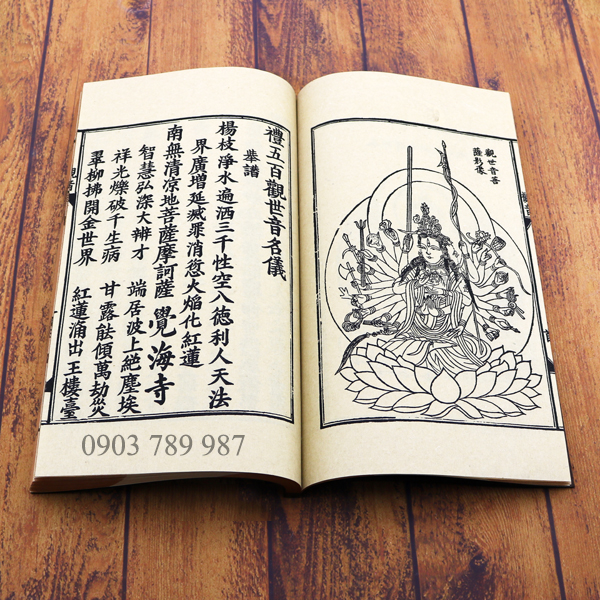 觀世音菩
薩影像
禮五百觀世音名儀
楊枝淨水遍洒三千性空八德利人天法
界廣增延滅罪消愆火焰化紅蓮
南無清凉地菩薩摩訶薩
覺海寺
智慧弘深大辨才 端居波上絕塵埃
祥光爍破千生病 甘露能傾萬劫災
翠柳拂開金世界 紅蓮涌出王樓臺
0903 789 987